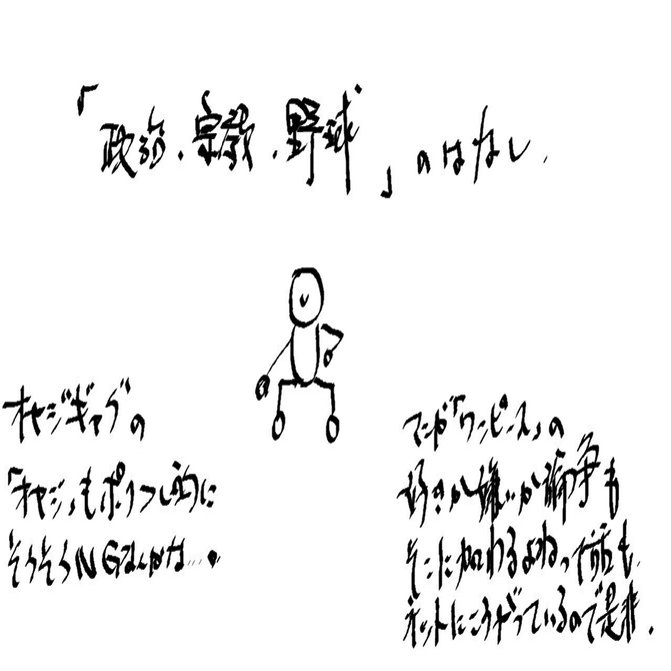 「政治、宗教、野球」のはなし、
オヤジギャグの
「オヤジ」もポリコレ的に
そろそろNGなんかな…。
マンガ「ワンピース」の
好きか嫌いか論争も
そこに加わるよねって話も、
ネットにころがっているので是非。